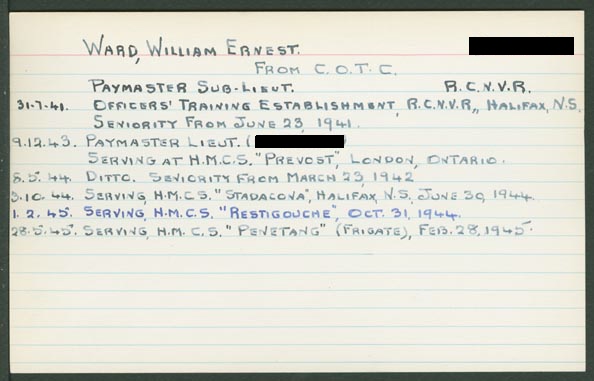 WARD, WILLIAM ERNEST.
FROM C.O.T.C.
PAYMASTER SUB-LIEUT. R.C.N.V.R.
31-7-41. OFFICERS' TRAINING ESTABLISHMENT, R.C.N.V.R., HALIFAX, N.S.
SENIORITY FROM JUNE 23, 1941.
9.12.43. PAYMASTER LIEUT. ( )
SERVING AT H.M.C.S. "PREVOST", LONDON, ONTARIO.
8.5.44. DITTO. SENIORITY FROM MARCH 23, 1942
3.10.44. SERVING, H.M.C.S. "STADACONA", HALIFAX, N.S., JUNE 30, 1944.
1.2.45. SERVING, H.M.C.S. "RESTIGOUCHE", OCT. 31, 1944.
28.5.45. SERVING, H.M.C.S. "PENETANG" (FRIGATE), FEB. 28, 1945.